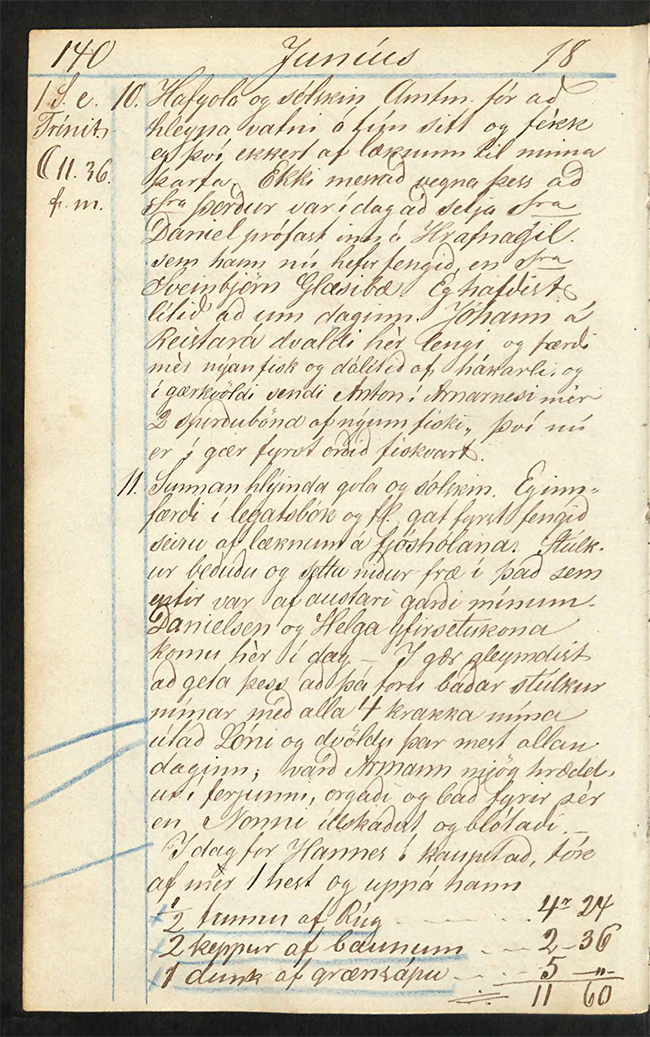 140 Junius 18
1 S. e. Trínit.
☾ 11. 36. f. m.
10. Hafgola og sólskin Amtm. fór að
hleypa vatni á tún sitt og fékk
eg því ekkert af læknum til minna
þarfa. Ekki messað vegna þess að
Sra Þórður var í dag að selja Sra
Daniel prófast inn á Hrafnagil.
sem hann nú hefir fengið, en Sra
Sveinbjörn Glæsibæ. Eg hafðist
lítið að um daginn. Jóhann á
Reistará dvaldi hèr lengi og færði
mèr nýan fisk og dálítið af hákarli, og
í gærkvöldi sendi Anton í Arnarnesi mèr
2 spirðubönd af nýum fiski, því nú
er í gær fyrst orðið fiskvart.
11. Sunnan hlýinda gola og sólskin. Eg inn-
færði í legatsbók og fl. gat fyrst fengið
seiru af læknum á fjóshólana. Stúlk-
ur beduðu og settu niður fræ í það sem
eptir var af austari garði mínum.
Danielsen og Helga yfirsetukona
komu hèr í dag – I gær gleymdist
að geta þess að þá fóru báðar stúlkur
mínar með alla 4 krakka mína
útað Lóni og dvöldu þar mest allan
daginn; varð Armann mjög hrædd-
ur í ferjunni, orgaði og bað fyrir sèr
en Nonni illskaðist og blótaði. –
I dag fór Hannes í kaupstað, tók
af mèr 1 hest og uppá hann
1/2 tunnu af Rúg 4r 24
2 keppur af baunum 2 – 36
1 dunk af grænsápu 5 – "
11 60